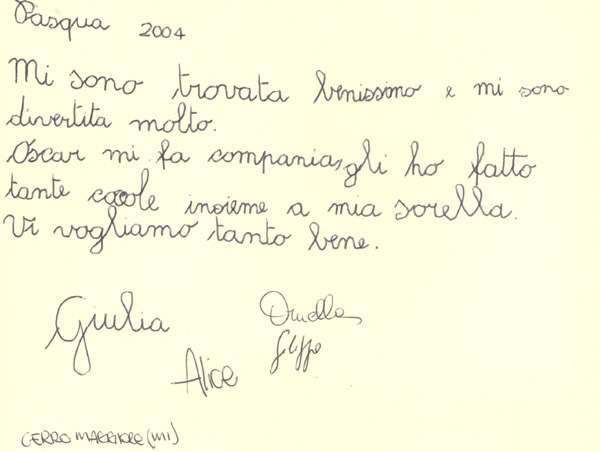 Pasqua 2004
Mi sono trovata benissimo e mi sono
divertita molto.
Oscar mi fa compania, gli ho fatto
tante cocole insieme a mia sorella.
Vi vogliamo tanto bene.
Giulia Ornella
Alice
CERRO MAGGIORE (MI)